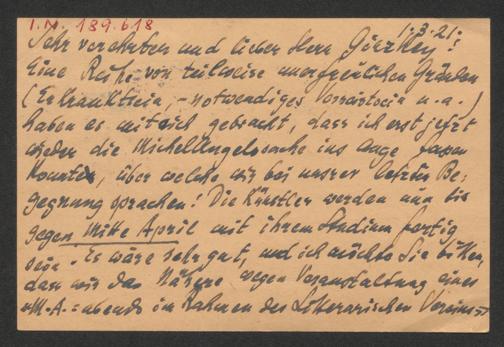 I.N. 189.618
1.3.21.
Sehr verehrter und lieber Herr
Eine Reihe von teilweise unerfreulichen Gründen
(Erkranktsein, - notwendiges u.a.)
haben es mit sich gebracht, dass ich erst jetzt
wieder die Michelangelosache ins Auge fassen
konnte, über welche wir bei unsrer letzten Be=
gegnung sprachen! Die Künstler werden nun bis
gegen Mitte April mit ihrem Studium fertig
sein. Es wäre sehr gut, und ich möchte Sie bitten,
dass wir das Nähere wegen Veranstaltung eines
"M.A."=abends im Rahmen des Litterarischen Vereins